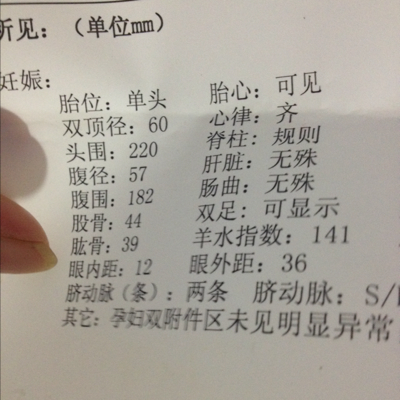 所见：（单位mm）
妊娠：
胎位：单头 胎心：可见
双顶径：60 心律：齐
头围：220 脊柱：规则
腹径：57 肝脏：无殊
腹围：182 肠曲：无殊
股骨：44 双足：可显示
肱骨：39 羊水指数：141
眼内距：12 眼外距：36
脐动脉（条）：两条 脐动脉：S/
其它：孕妇双附件区未见明显异常